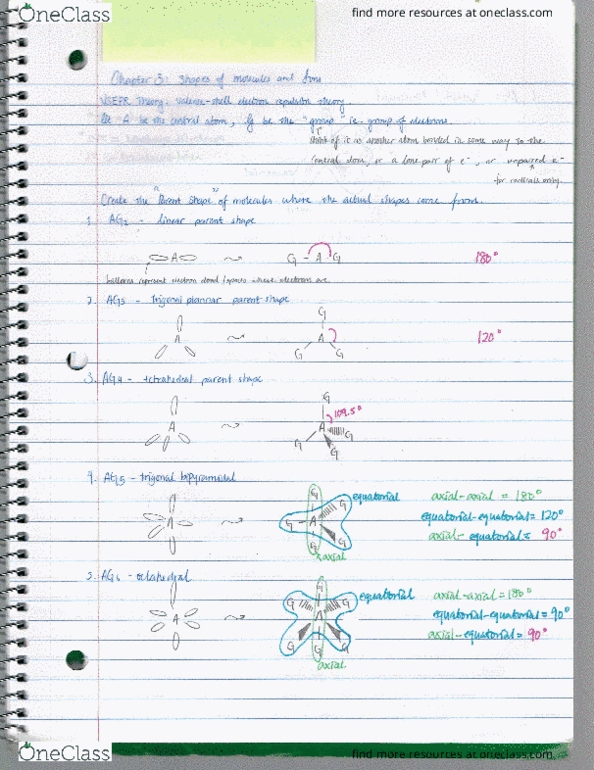 OneClass
find more resources at oneclass.com
Chapter 3: Shapes of molecules and Ions
VSEPR Theory: valence-shell electron repulsion theory.
let A be the central atom, G be the "group" i.e. group of electrons.
think of it as another atom bonded in some way to the
central atom, or a lone pair of e⁻, or unpaired e⁻
for radicals only.
Create the "Parent Shape" of molecules where the actual shapes come from.
1. AG2 - linear parent shape
A
G - A - G
180°
balloons represent electron cloud / spaces where electrons are
2. AG3 - Trigonal plannar parent shape
G
A
A
120°
G G
3. AG4 - tetrahedral parent shape
G
109.5°
A
A
G
G
G
4. AG5 - trigonal bipyramidal
G
equatorial
axial-axial = 180°
A
G - A
G
equatorial-equatorial = 120°
G
G
axial-equatorial = 90°
axial
5. AG6 - octahedral
G
equatorial
axial-axial = 180°
G G
A
A
equatorial-equatorial = 90°
G G
axial-equatorial = 90°
G
axial
OneClass
find more resources at oneclass.com